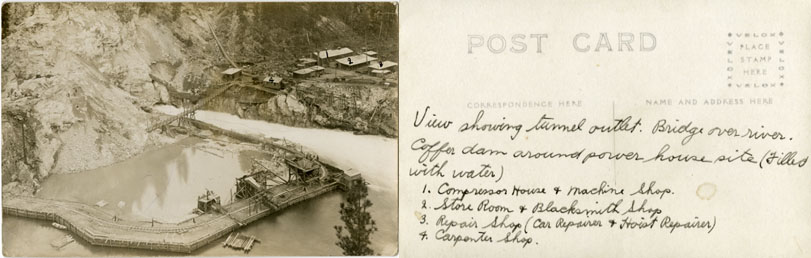 POST CARD
VELOX
PLACE
STAMP
HERE
VELOX
CORRESPONDENCE HERE
NAME AND ADDRESS HERE
View showing tunnel outlet. Bridge over river.
Coffer dam around power house site (Filled
with water)
1. Compressor House & Machine Shop.
2. Store Room & Blacksmith Shop
3. Repair Shop (Car Repairer & Hoist Repairer)
4. Carpenter Shop.